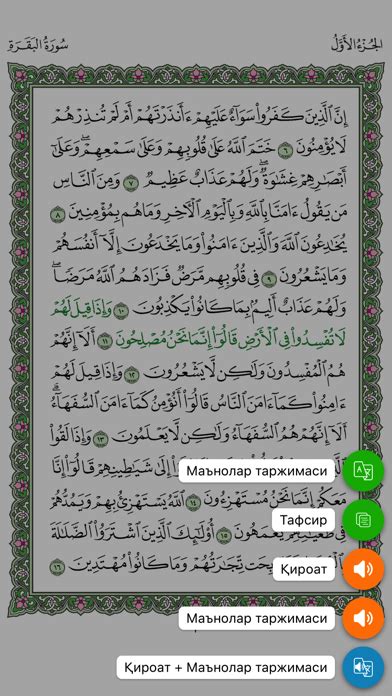 سُورَةُ البَقَرَةِ الجُزْءُ الأَوَّلُ
إِنَّ ٱلَّذِينَ كَفَرُوا۟ سَوَآءٌ عَلَيْهِمْ ءَأَنذَرْتَهُمْ أَمْ لَمْ تُنذِرْهُمْ
لَا يُؤْمِنُونَ ٦ خَتَمَ ٱللَّهُ عَلَىٰ قُلُوبِهِمْ وَعَلَىٰ سَمْعِهِمْ ۖ وَعَلَىٰٓ
أَبْصَٰرِهِمْ غِشَٰوَةٌ ۖ وَلَهُمْ عَذَابٌ عَظِيمٌ ٧ وَمِنَ ٱلنَّاسِ
مَن يَقُولُ ءَامَنَّا بِٱللَّهِ وَبِٱلْيَوْمِ ٱلْءَاخِرِ وَمَا هُم بِمُؤْمِنِينَ ٨
يُخَٰدِعُونَ ٱللَّهَ وَٱلَّذِينَ ءَامَنُوا۟ وَمَا يَخْدَعُونَ إِلَّآ أَنفُسَهُمْ
وَمَا يَشْعُرُونَ ٩ فِى قُلُوبِهِم مَّرَضٌ فَزَادَهُمُ ٱللَّهُ مَرَضًا ۖ
وَلَهُمْ عَذَابٌ أَلِيمٌۢ بِمَا كَانُوا۟ يَكْذِبُونَ ١٠ وَإِذَا قِيلَ لَهُمْ
لَا تُفْسِدُوا۟ فِى ٱلْأَرْضِ قَالُوٓا۟ إِنَّمَا نَحْنُ مُصْلِحُونَ ١١ أَلَآ إِنَّهُمْ
هُمُ ٱلْمُفْسِدُونَ وَلَٰكِن لَّا يَشْعُرُونَ ١٢ وَإِذَا قِيلَ لَهُمْ
ءَامِنُوا۟ كَمَآ ءَامَنَ ٱلنَّاسُ قَالُوٓا۟ أَنُؤْمِنُ كَمَآ ءَامَنَ ٱلسُّفَهَآءُ ۗ
أَلَآ إِنَّهُمْ هُمُ ٱلسُّفَهَآءُ وَلَٰكِن لَّا يَعْلَمُونَ ١٣ وَإِذَا لَقُوا۟
إِلَىٰ شَيَٰطِينِهِمْ قَالُوٓا۟ إِنَّا
Маънолар таржимаси
مَعَكُمْ إِنَّمَا نَحْنُ مُسْتَهْزِءُونَ ١٤ ٱللَّهُ يَسْتَهْزِئُ بِهِمْ وَيَمُدُّهُمْ
Тафсир
يَعْمَهُونَ ١٥ أُو۟لَٰٓئِكَ ٱلَّذِينَ ٱشْتَرَوُا۟ ٱلضَّلَٰلَةَ
رَبِحَت تِّجَٰرَتُهُمْ وَمَا كَانُوا۟ مُهْتَدِينَ ١٦
Қироат
Маънолар таржимаси
Қироат + Маънолар таржимаси